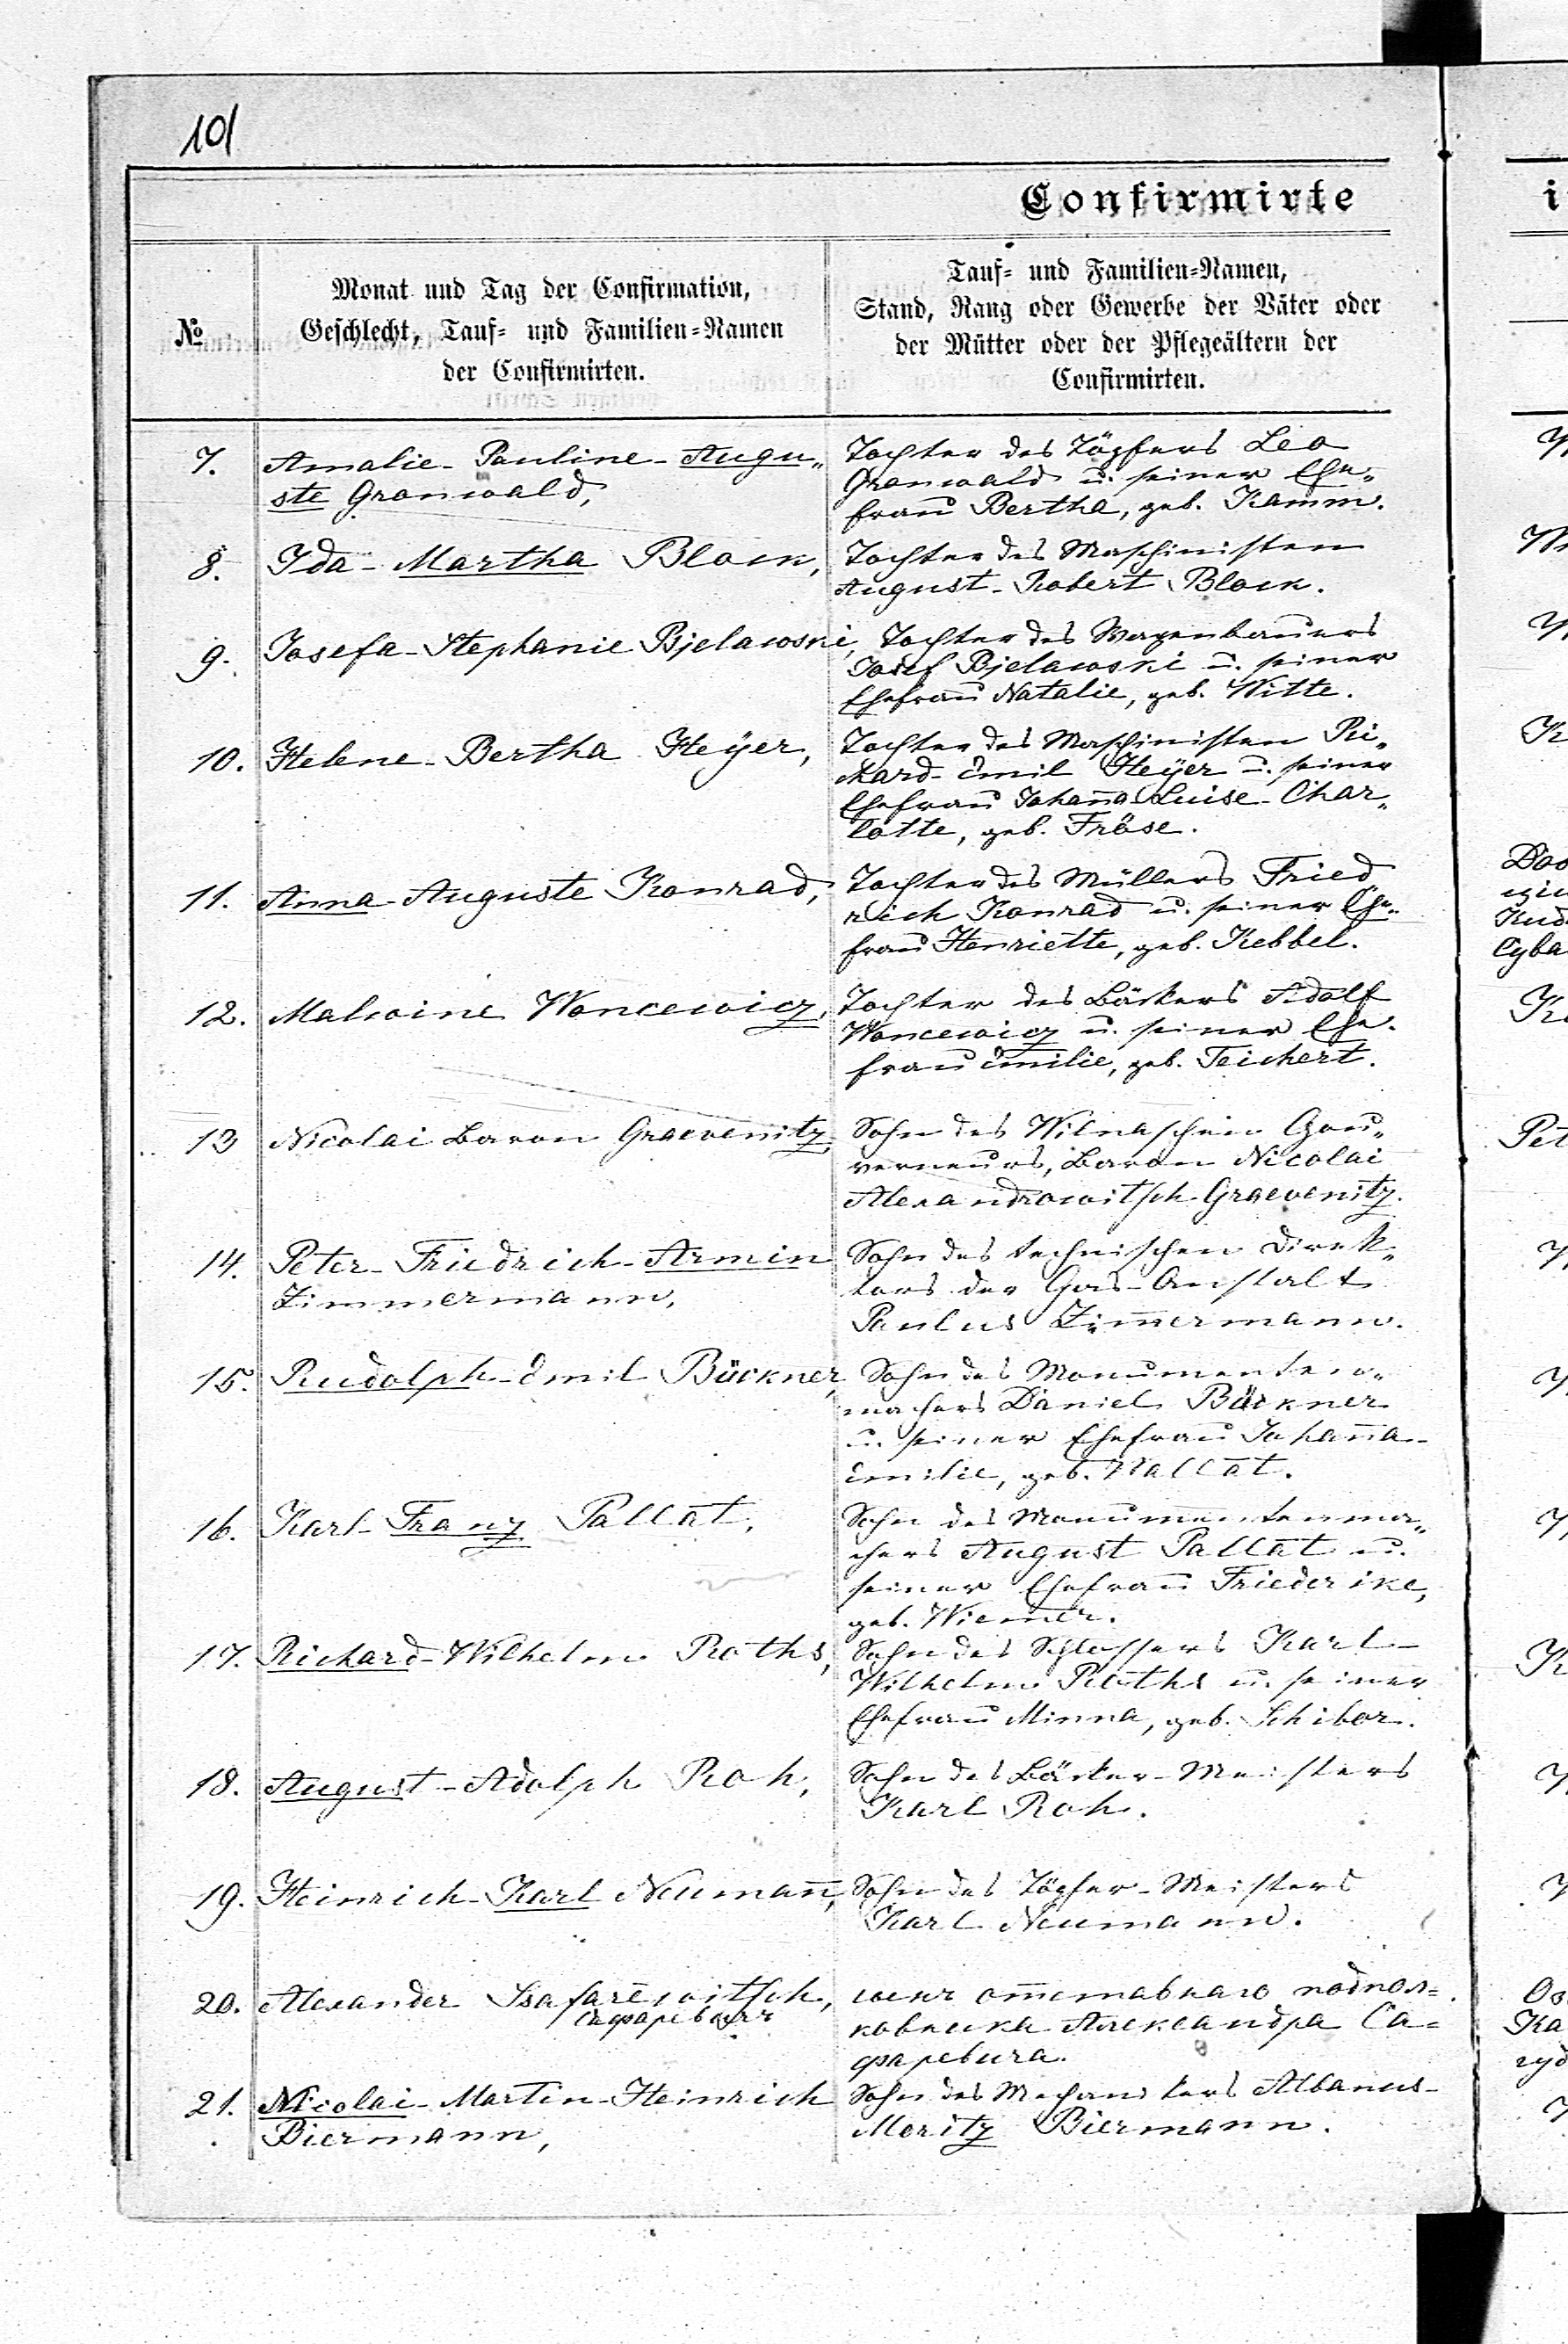 101
Confirmirte
i
№
Monat und Tag der Confirmation,
Geschlecht, Tauf- und Familien-Namen
der Confirmirten.
Tauf- und Familien-Namen,
Stand, Rang oder Gewerbe der Väter oder
der Mütter oder der Pflegeältern der
Confirmirten.
7.
Amalie-Pauline-Augu„
ste Granwald,
Tochter des Töpfers Leo
Granwald u. seiner Ehe„
frau Bertha, geb. Kamm.
8.
Ida-Martha Block,
Tochter des Maschinisten
August-Robert Block.
9.
Josefa-Stephanie Bjelawski,
Tochter des Wagenbauers
Josef Bjelawski u. seiner
Ehefrau Natalie, geb. Witte.
10.
Helene-Bertha Heÿer,
Tochter des Maschinisten Ri„
chard-Emil Heÿer u. seiner
Ehefrau Johan̄a-Luise-Char„
lotte, geb. Fröse.
11.
Anna-Auguste Konrad,
Tochter des Müllers Fried
rich Konrad u. seiner Ehe„
frau Henriette, geb. Kebbel.
12.
Malwine Woncewicz,
Tochter des Bäckers Adolf
Woncewicz u. seiner Ehe-
frau Emilie, geb. Teichert.
13
Nicolai Baron Graevenitz
Sohn des Wilnaschen Gou„
verneurs, Baron Nicolai
Alexandrowitsch Graevenitz.
14.
Peter-Friedrich-Armin
Zimmermann,
Sohn des technischen Direk„
tors der Gas-Anstalt
Paulus Zim̄ermann.
15.
Rudolph-Emil Bückner,
Sohn des Monumenten„
machers Daniel Bückner
u. seiner Ehefrau Johan̄a-
Emilie, geb. Pallat.
16.
Karl-Franz Pallat,
Sohn des Monumentenma„
chers August Pallat u.
seiner Ehefrau Friederike,
geb. Wiemer.
17.
Richard-Wilhelm Roths,
Sohn des Schlossers Karl-
Wilhelm Roths u. seiner
Ehefrau Minna, geb. Schibor.
18.
August-Adolph Roh,
Sohn des Bäcker-Meisters
Karl Roh.
19.
Heinrich-Karl Neuman̄,
Sohn des Töpfer-Meisters
Karl Neumann.
20.
Alexander Ssafarewitsch,
Сафаревичъ
сынъ отставнаго подпол=
ковника Александра Са=
фаревича.
21.
Nicolai-Martin-Heinrich
Biermann,
Sohn des Albanus-
Moritz Biermann.